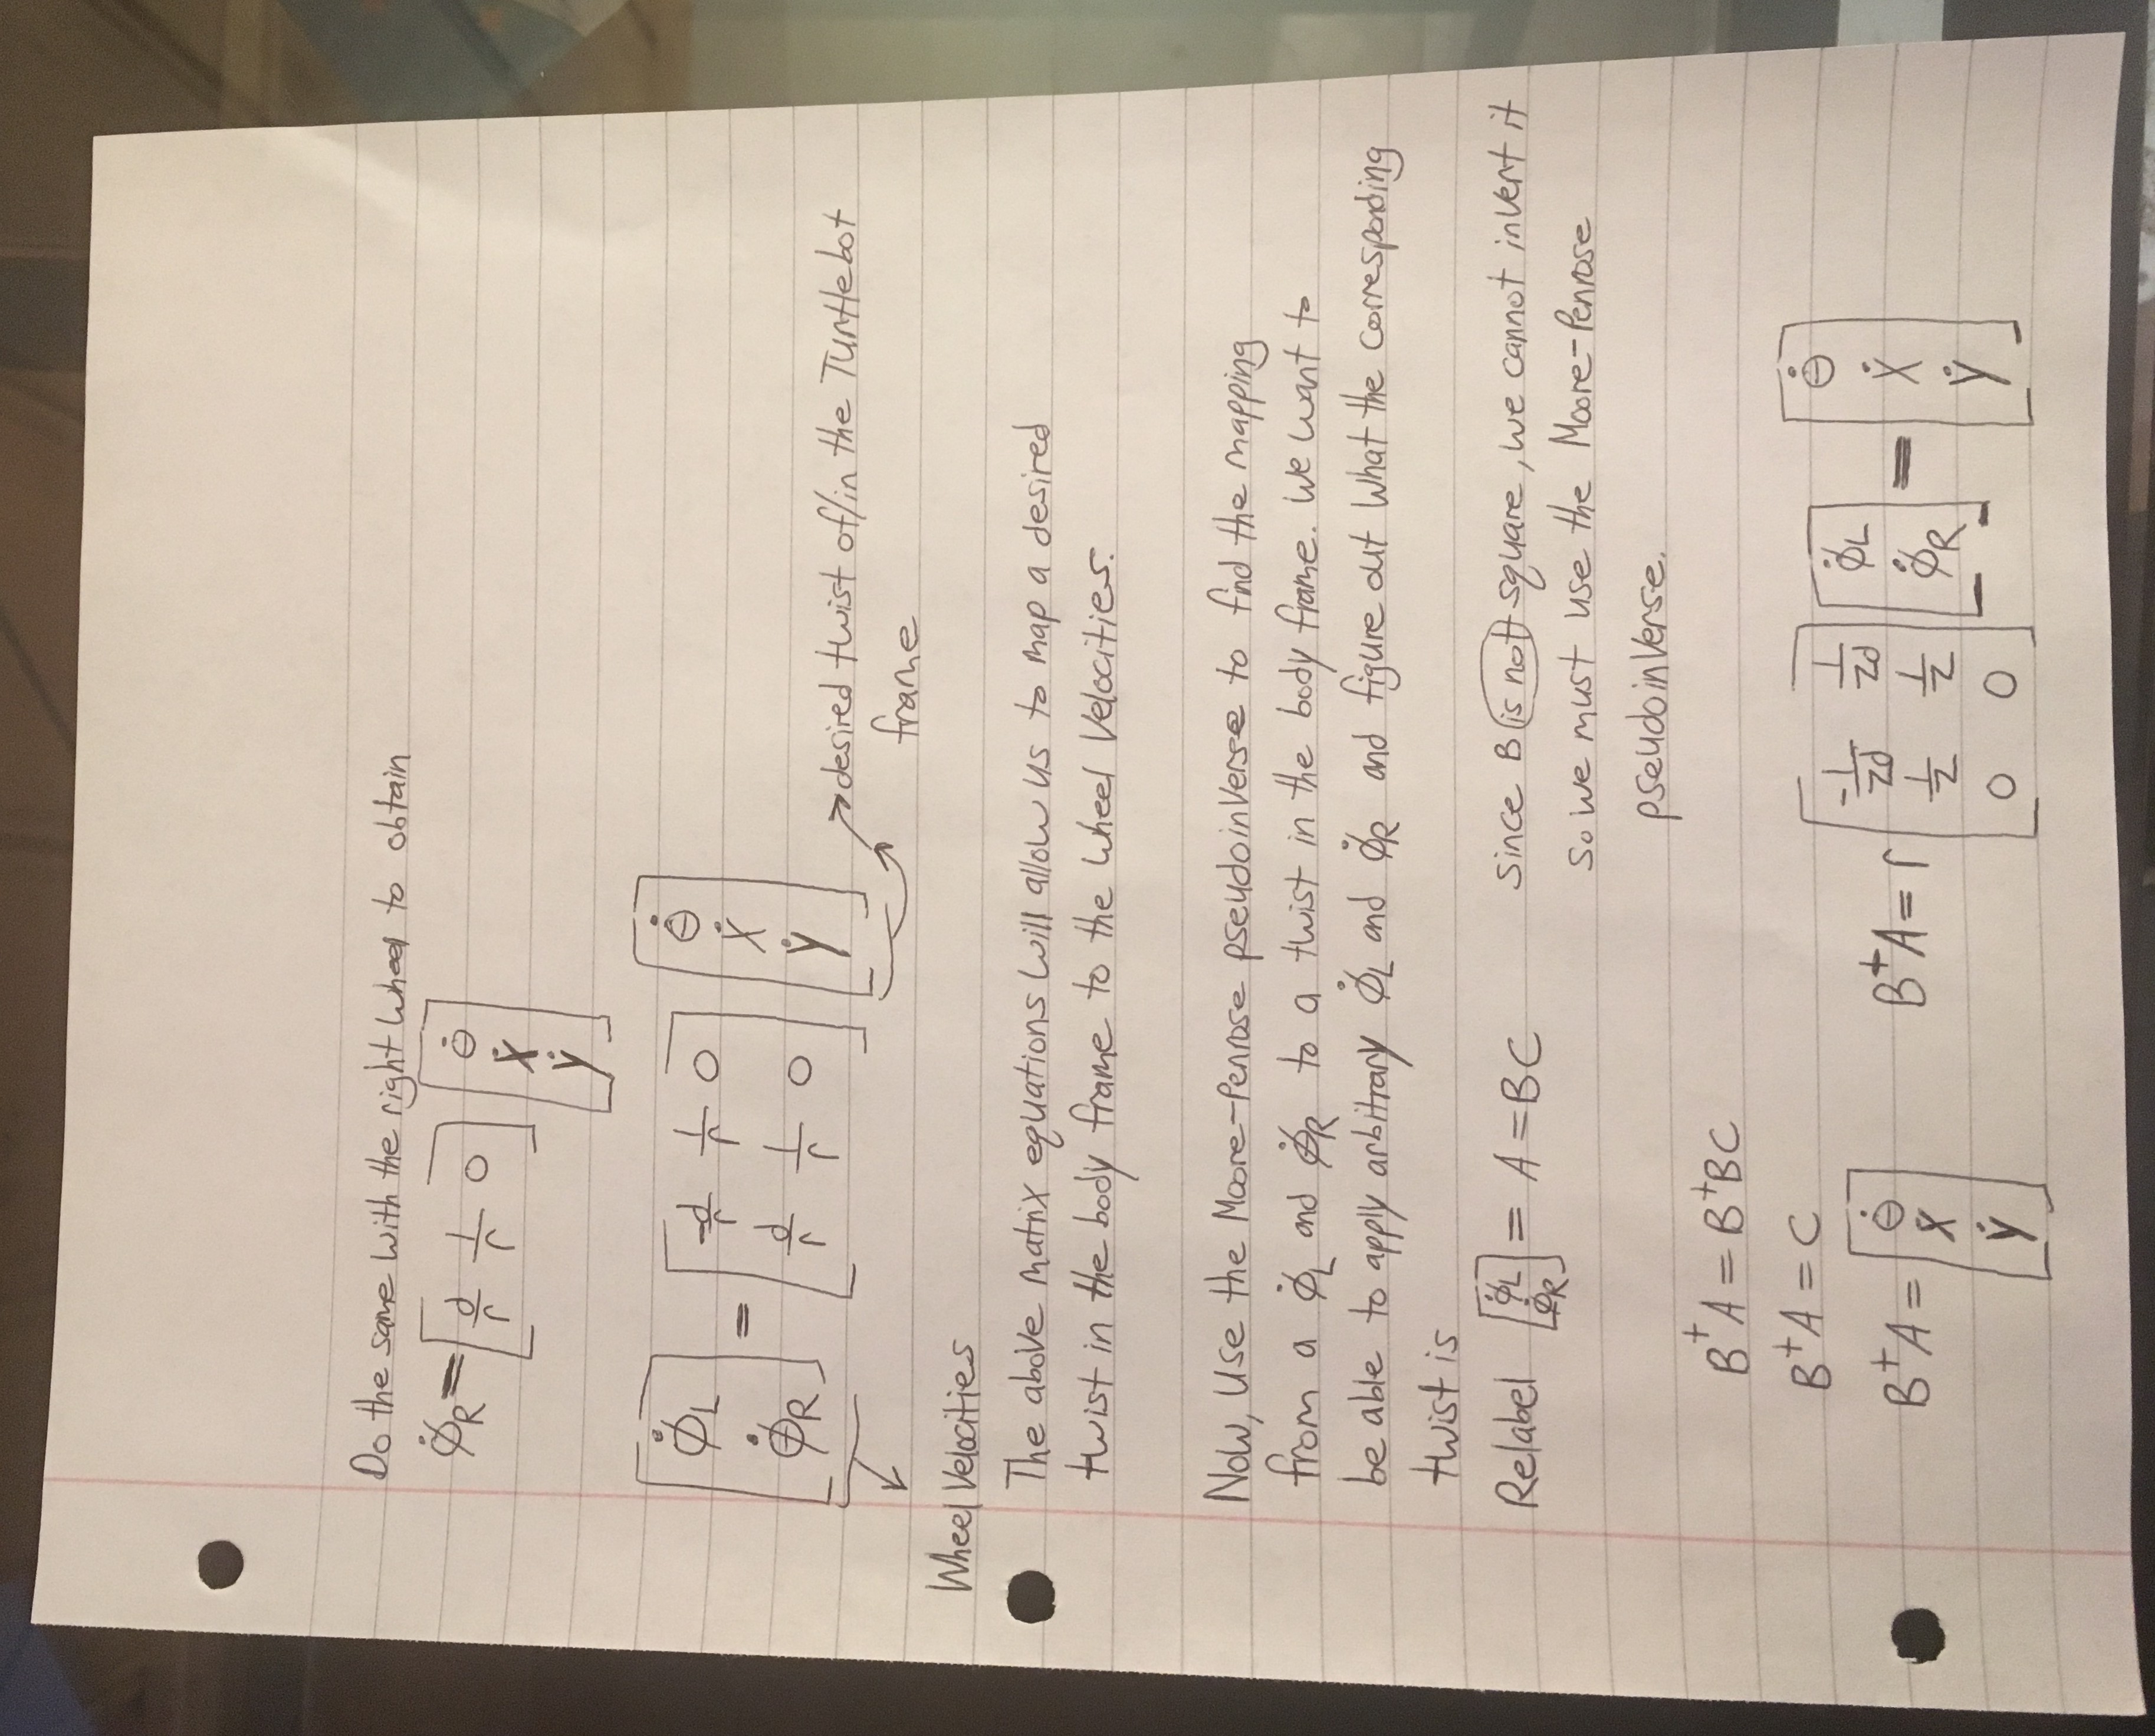 Do the same with the right wheel to obtain
ϕ̇R = [d/r 1/r 0] [θ̇ ẋ ẏ]
[ϕ̇L ϕ̇R] = [-d/r 1/r 0; d/r 1/r 0] [θ̇ ẋ ẏ]
→ desired twist of/in the Turtlebot
frame
Wheel Velocities
The above matrix equations will allow us to map a desired
twist in the body frame to the wheel velocities.
Now, use the Moore-Penrose pseudoinverse to find the mapping
from a ϕ̇L and ϕ̇R to a twist in the body frame. We want to
be able to apply arbitrary ϕ̇L and ϕ̇R and figure out what the corresponding
twist is
Relabel [ϕ̇L ϕ̇R] = A = BC
Since B is not square, we cannot invert it
so we must use the Moore-Penrose
pseudoinverse.
B⁺A = B⁺BC
B⁺A = C
B⁺A = [θ̇ ẋ ẏ]
B⁺A = r [-1/2d 1/2d; 1/2 1/2; 0 0] [ϕ̇L ϕ̇R] = [θ̇ ẋ ẏ]